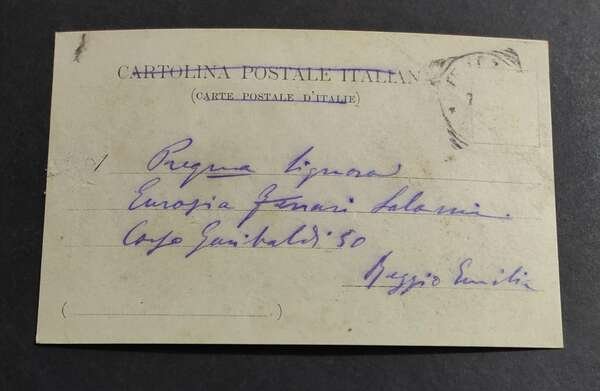 CARTOLINA POSTALE ITALIAN
(CARTE POSTALE D'ITALIE)
Pregma Signora
Eurosia Ferrari Salami
Corso Garibaldi 50
Reggio Emilia